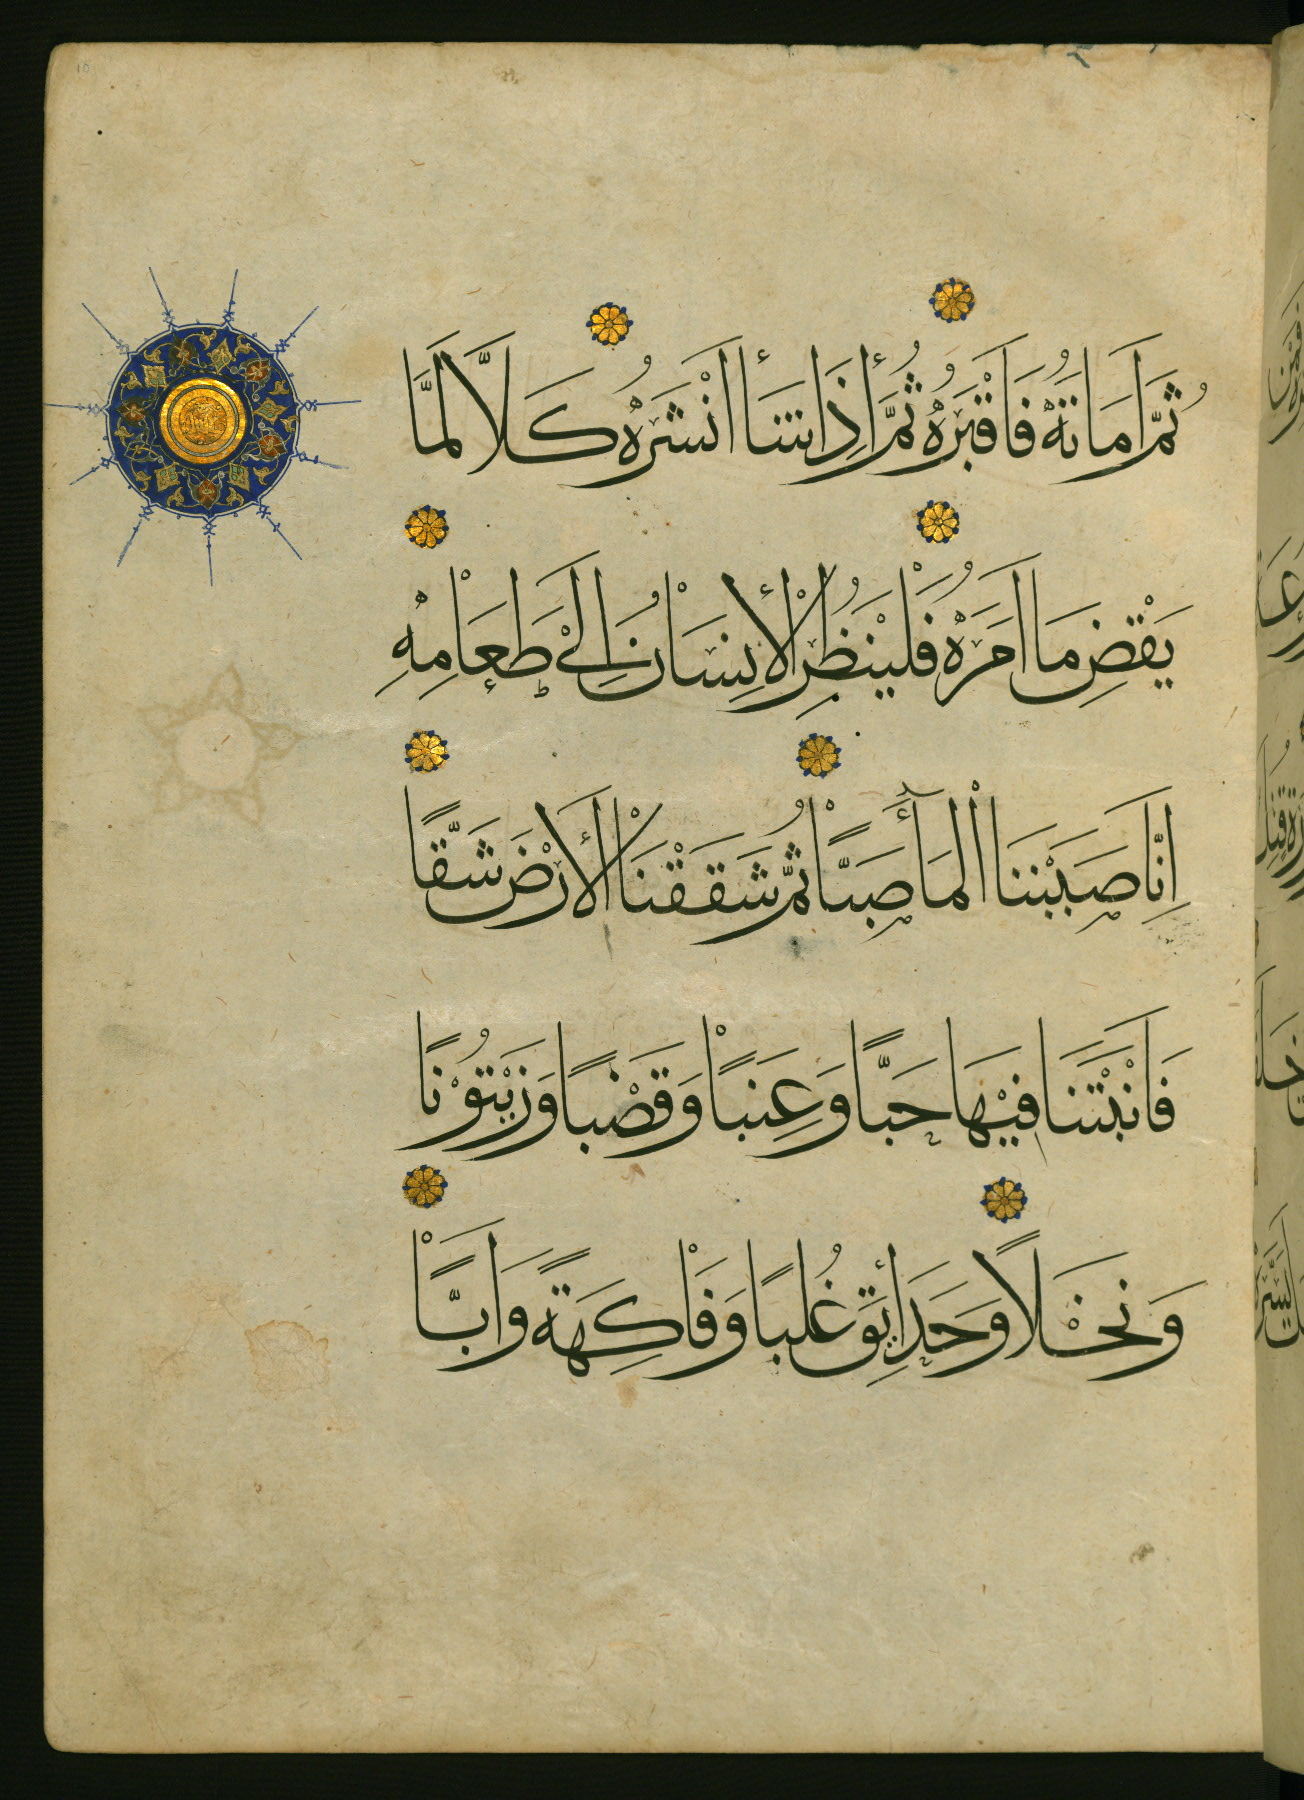 ثُمَّ اَمَاتَهُ فَاَقْبَرَهُ ثُمَّ إِذَا شَأَ اَنْشَرَهُ كَلَّا لَمَّا
يَقْضِ مَا اَمَرَهُ فَلْيَنْظُرِ الْإِنسَانُ إِلَىٰ طَعَامِهِ
اِنَّا صَبَبْنَا الْمَآءَ صَبًّا ثُمَّ شَقَقْنَا الْأَرْضَ شَقًّا
فَاَنْبَتْنَا فِيْهَا حَبًّا وَعِنَبًا وَقَضْبًا وَزَيْتُوْنًا
وَنَخْلًا وَحَدَائِقَ غُلبًا وَفَاكِهَةً وَاَبًّا